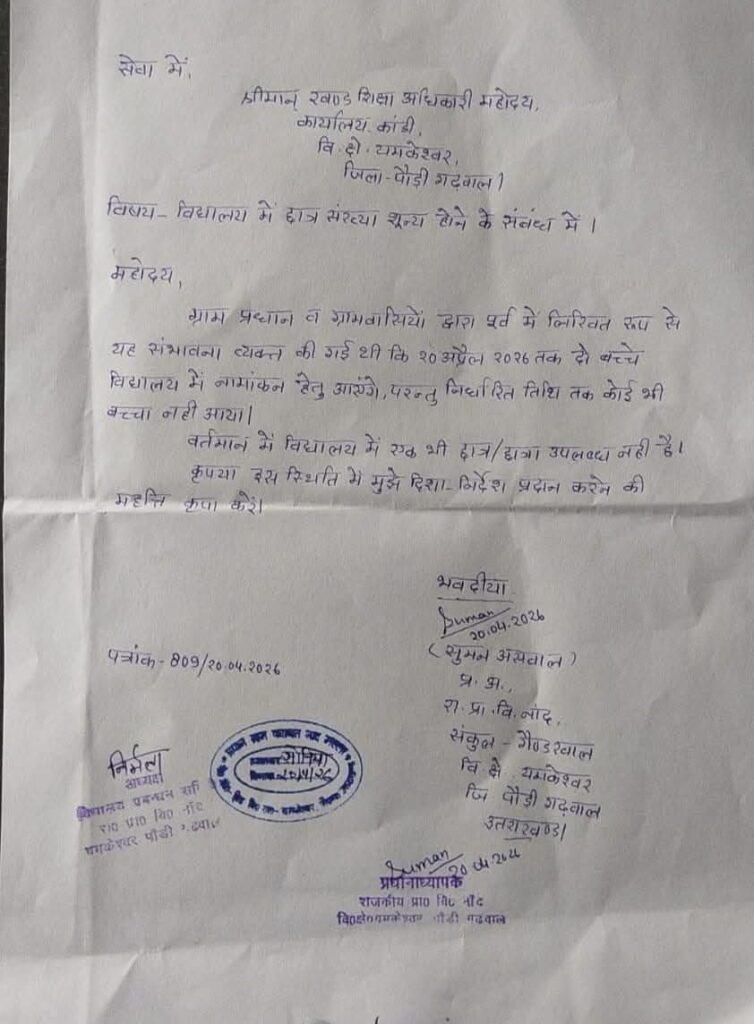 सेवा में,
श्रीमान् खण्ड शिक्षा अधिकारी महोदय,
कार्यालय कांडी,
वि. क्षे. यमकेश्वर,
जिला-पौड़ी गढ़वाल।
विषय- विद्यालय में छात्र संख्या शून्य होने के संबंध में।
महोदय,
ग्राम प्रधान व ग्रामवासियों द्वारा पूर्व में लिखित रूप से
यह संभावना व्यक्त की गई थी कि 20 अप्रैल 2026 तक दो बच्चे
विद्यालय में नामांकन हेतु आएंगे, परन्तु निर्धारित तिथि तक कोई भी
बच्चा नही आया।
वर्तमान में विद्यालय में एक भी छात्र/छात्रा उपलब्ध नही है।
कृपया इस स्थिति में मुझे दिशा-निर्देश प्रदान करने की
कृपा करें।
भवदीया
Suman
20.04.2026
(सुमन असवाल)
प्र. अ.,
रा. प्रा. वि. नांद,
संकुल - गैण्डखाल
वि. क्षे. यमकेश्वर
जि. पौड़ी गढ़वाल
उत्तराखण्ड।
पत्रांक- 809/20.04.2026
निर्मला
अध्यक्ष
विद्यालय प्रबन्धन
रा० प्रा० वि० नांद
यमकेश्वर पौडी गढवाल
20/4/26
Suman
20.04.2026
प्रधानाध्यापक
राजकीय प्रा० वि० नांद
वि०क्षे०यमकेश्वर पौडी गढवाल